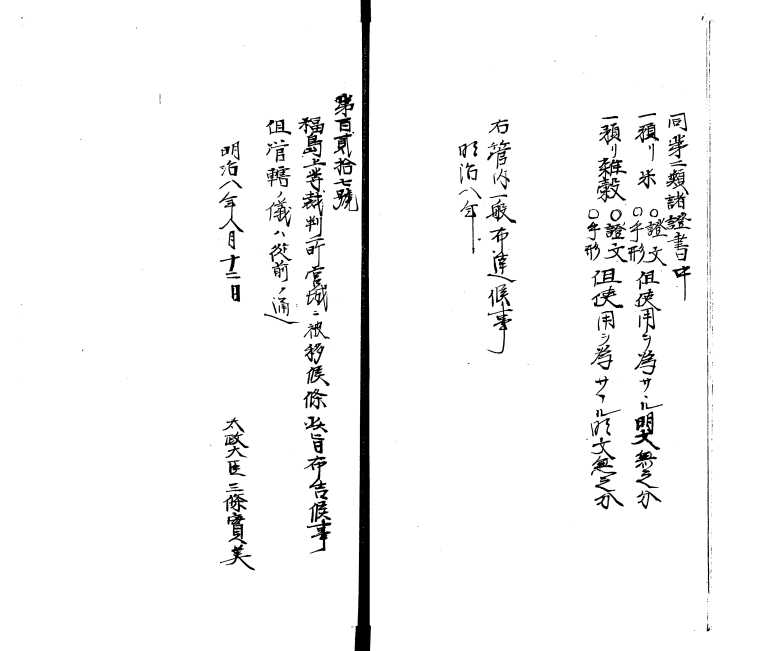 同第二類諸證書中
一預リ米 ○證文 ○手形 但使用ヲ為サヽル明文無之分
一預リ雑穀 ○證文 ○手形 但使用ヲ為サヽル明文無之分
右管内一般布達候事
明治八年
第百貳拾七號
福島上等裁判所宮城ニ被移候條此旨布告候事
但管轄ノ儀ハ從前ノ通
明治八年八月十二日
太政大臣三條實美